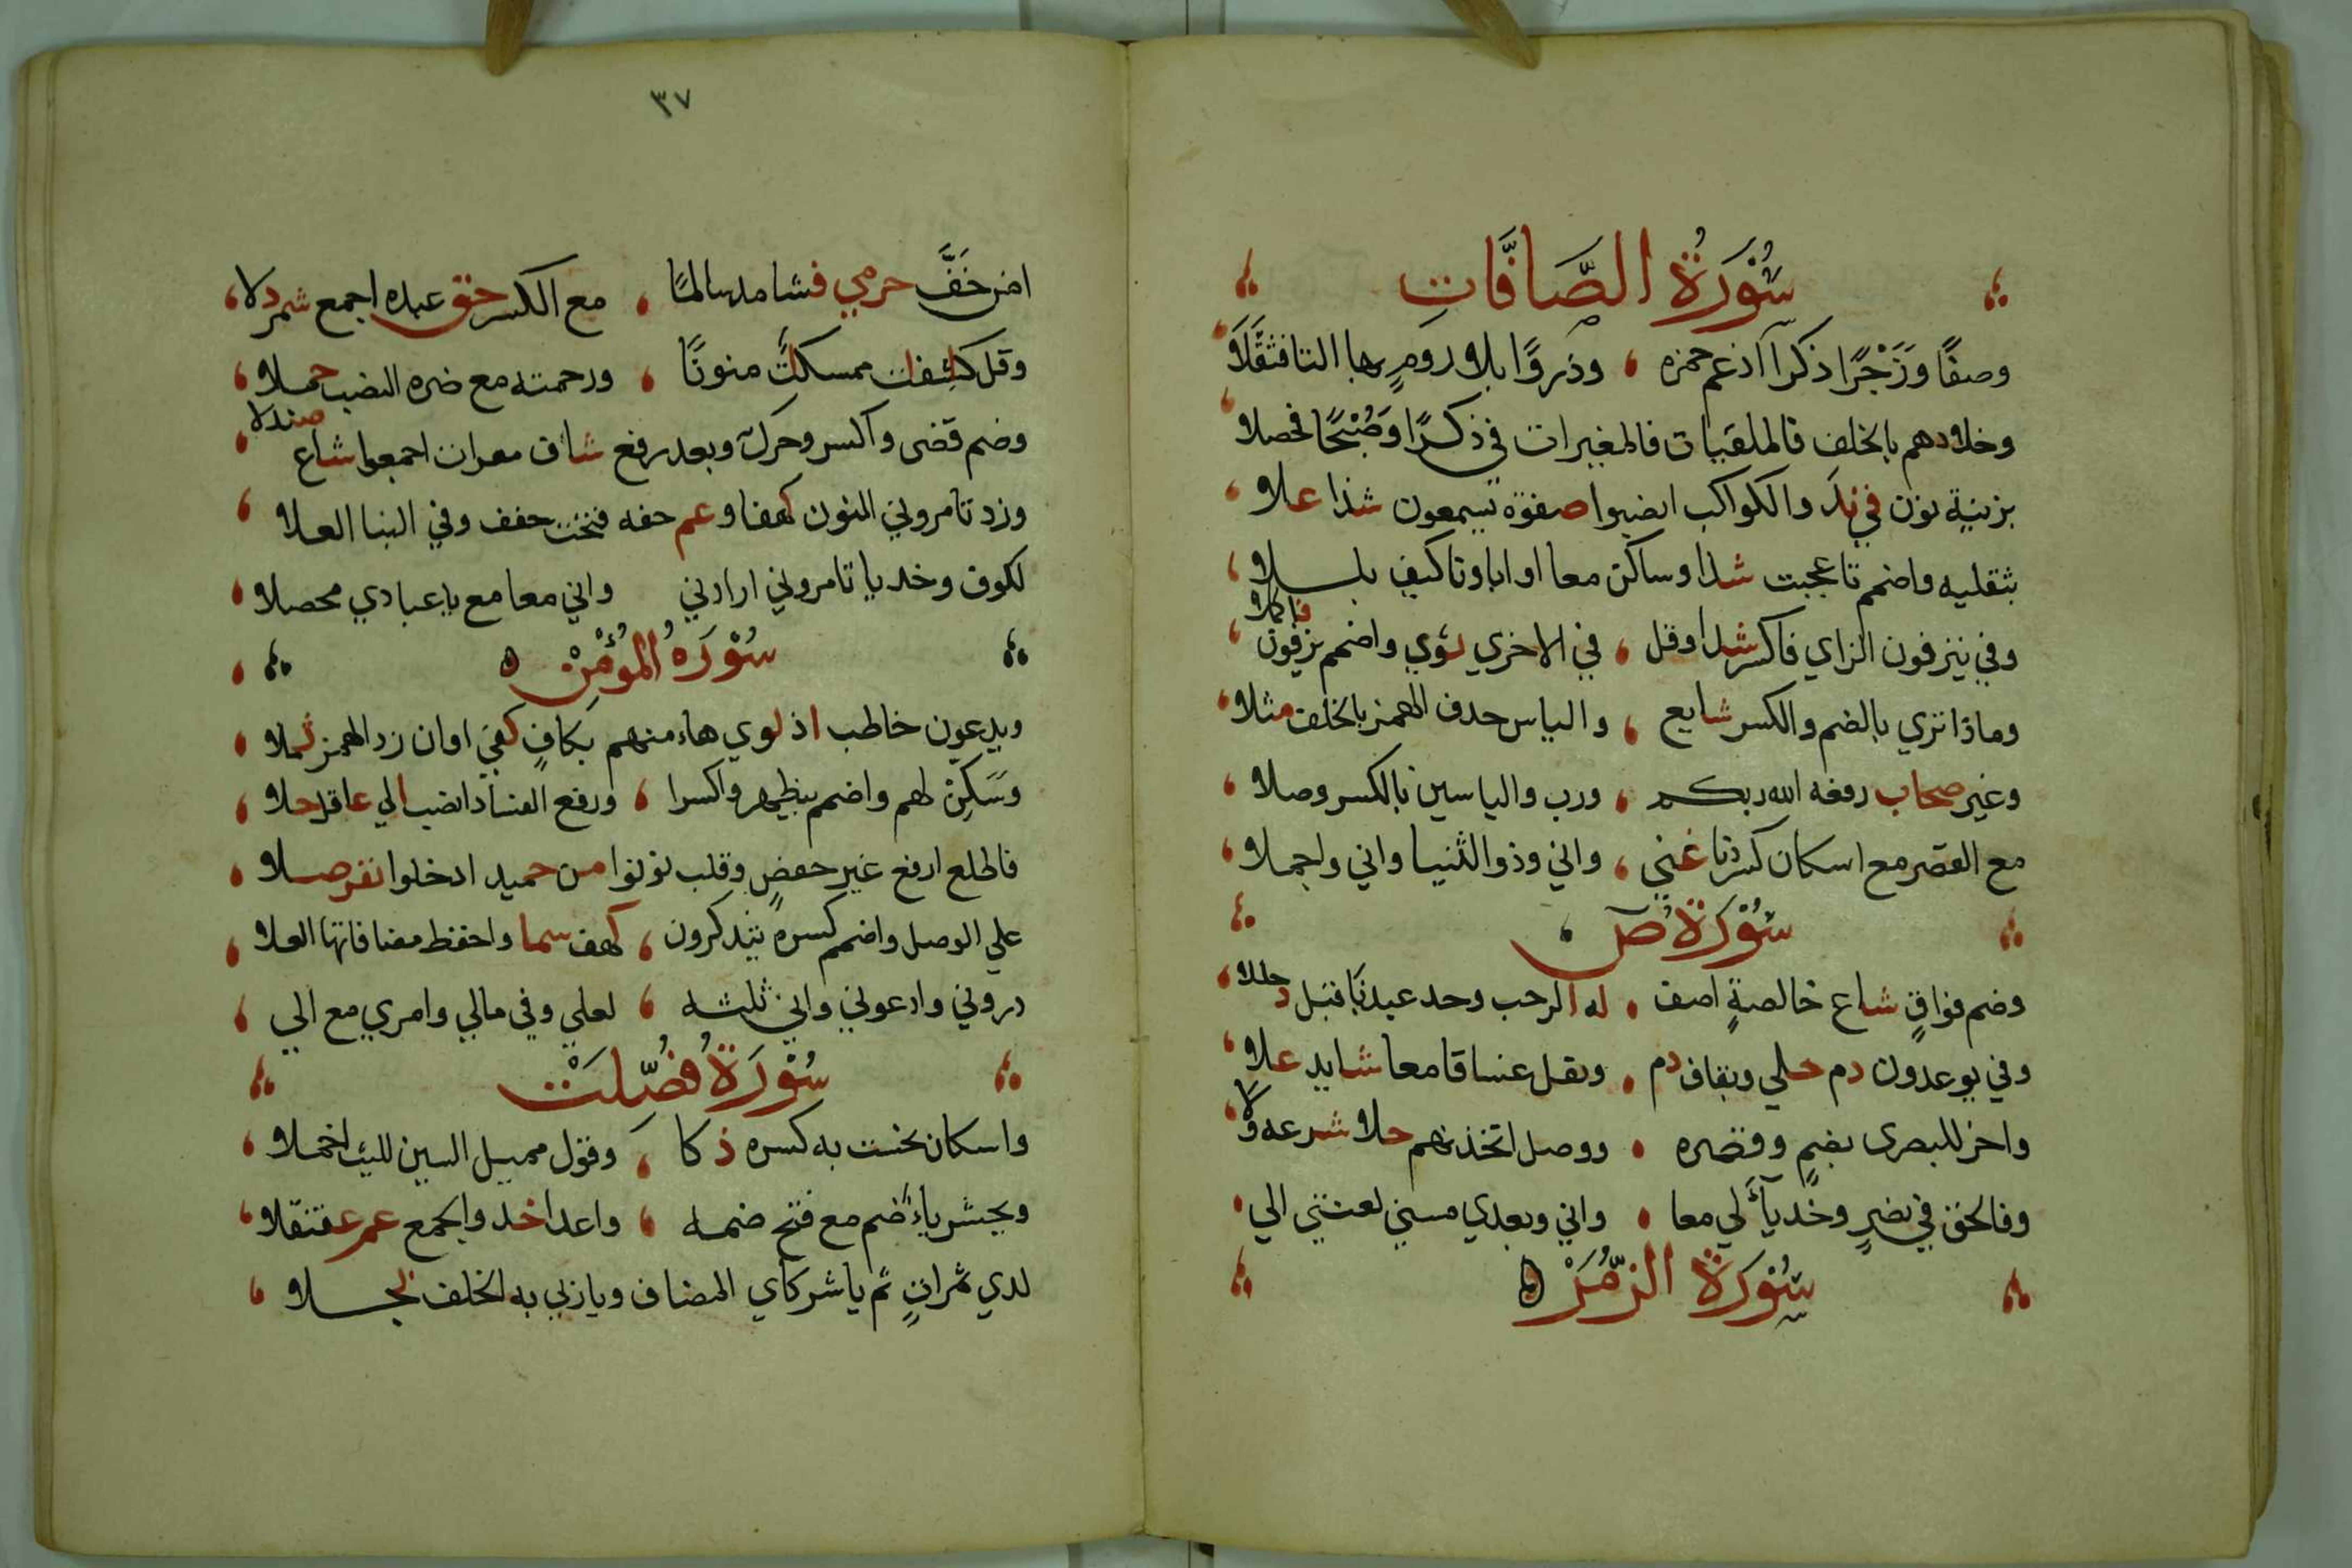 سُوْرَةُ الصَّافَّاتِ
وصفًا وَزَجْرًا ذكرا ادغم حمزه وذروًا بلا رومٍ بها التا فثقَّلَا
وخلادهم بالخلف فالملقيات فالمغيرات في ذكرًا وَصُبْحًا فحصلا
بزينةٍ نون في ند والكواكب انصبوا صفوة يسمعون شذا علا
بثقليه واضمم تا عجبت شذا وساكن معا او اباونا كيف بللا
وفي ينزفون الزاي فاكسر شذا وقل في الاخري ثوي واضمم يزفون فاكملا
وماذا تري بالضم والكسر شايع والياس حذف الهمز بالخلف مثلا
وغير صحاب رفعه الله ربكم ورب والياسين بالكسر وصلا
مع القصر مع اسكان كسر دنا غني واني وذو الثنيا واني واجملا
سُوْرَةُ صٓ
وضم فواقٍ شاع خالصةٍ اضف له الرحب وحد عبدنا قبل دخللا
وفي يوعدون دم حلي وبقاف دم وثقل غساقا معا شايد علا
واخر للبصري بضمٍ وقصره ووصل اتخذناهم حلا شرعه ولا
وفالحق في نصرٍ وخذ يآ لي معا واني وبعدي مسني لعنتي الي
سُوْرَةُ الزُّمَرْ
٣٧
امن خَفَّ حرمي فشا مد سالمًا مع الكسر حق عبده اجمع شمردلا
وقل كاشفات ممسكات منونًا ورحمته مع ضره النصب حملا
وضم قضى واكسر وحرك وبعد رفع شاف مفازات اجمعوا شاع صندلا
وزد تامروني النون كهفا وعم خفه فتحت خفف وفي النبا العلا
لكوف وخذ يا تامروني ارادني واني معا مع يا عبادي محصلا
سُوْرَةُ المُؤْمِنْ
ويدعون خاطب اذ لوي هاء منهم بكافٍ كفي او ان زد الهمز ثملا
وَسَكِنْ لهم واضمم بيظهر واكسرا ورفع الفساد انصب الي عاقل حلا
فاطلع ارفع غير حفصٍ وقلب نونوا من حميد ادخلوا نفر صلا
علي الوصل واضمم كسره يتذكرون كهف سما واحفظ مضافاتها العلا
ذروني وادعوني واني ثلثه لعلي وفي مالي وامري مع الي
سُوْرَةُ فُصِّلَتْ
واسكان نحسات به كسره ذكا وقول مميل السين لليث اخملا
ونحشر ياءٌ ضم مع فتح ضمه واعدا خذ والجمع عم عقنقلا
لدي ثمراتٍ ثم يا شركاي المضاف ويا ربي به الخلف بجلا